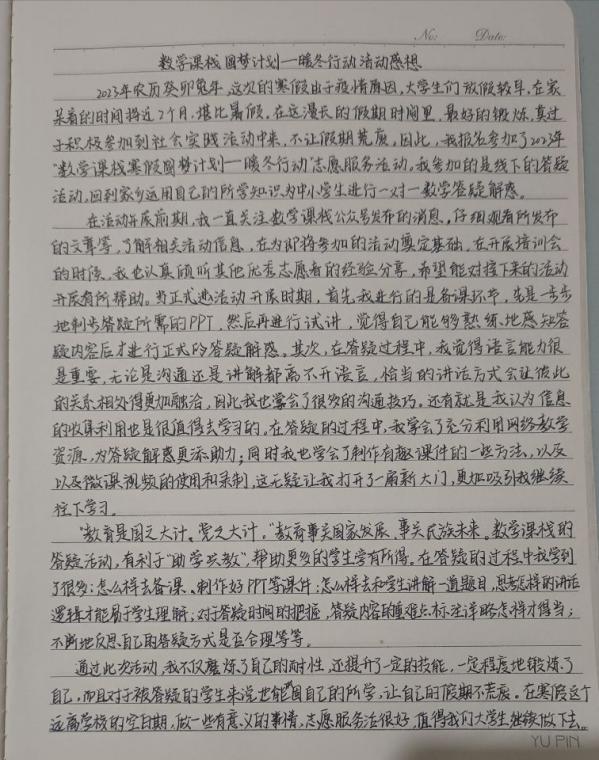 No: Date:
数学课栈圆梦计划一暖冬行动活动感想
2023年农历癸卯兔年,这次的寒假由于疫情原因,大学生们放假较早,在家
呆着的时间将近2个月,堪比暑假。在这漫长的假期时间里,最好的锻炼,莫过
于积极参加到社会实践活动中来,不让假期荒废。因此,我报名参加了2023年
“数学课栈寒假圆梦计划一暖冬行动”志愿服务活动,我参加的是线下的答疑
活动,回到家乡运用自己的所学知识为中小学生进行一对一数学答疑解惑。
在活动开展前期,我一直关注数学课栈公众号发布的消息,仔细观看所发布
的文章等,了解相关活动信息,在为即将参加的活动奠定基础。在开展培训会
的时候,我也认真倾听其他优秀志愿者的经验分享,希望能对接下来的活动
开展有所帮助。当正式进活动开展时期,首先我进行的是备课环节,先是一步步
地制步答疑所需的PPT,然后再进行试讲,觉得自己能够熟练地感知答
疑内容后才进行正式的答疑解惑。其次,在答疑过程中,我觉得语言能力很
是重要,无论是沟通还是讲解都离不开语言,恰当的讲话方式会让彼此
的关系相处得更加融洽,因此我也学会了很多的沟通技巧。还有就是我认为信息
的收集利用也是很值得去学习的,在答疑的过程中,我学会了充分利用网络教学
资源,为答疑解惑更添助力;同时我也学会了制作有趣课件的一些方法,以及
以及微课视频的使用和录制,这无疑让我打开了一扇新大门,更加吸引我继续
往下学习。
“教育是国之大计、党之大计。”教育事关国家发展、事关民族未来。数学课栈的
答疑活动,有利于“助学兴教”,帮助更多的学生学有所得。在答疑的过程中我学到
了很多:怎么样去备课、制作好PPT等课件;怎么样去和学生讲解一道题目,思考怎样的讲话
逻辑才能易于学生理解;对于答疑时间的把握,答疑内容的重难点标注详略怎样才得当;
不断地反思自己的答疑方式是否合理等等。
通过此次活动,我不仅磨炼了自己的耐性,还提升了一定的技能,一定程度地锻炼了
自己,而且对于被答疑的学生来说也能固自己的所学,让自己的假期不荒废。在寒假这个
远离学校的空白期,做一些有意义的事情,志愿服务活很好,值得我们大学生继续做下去。
YU PIN